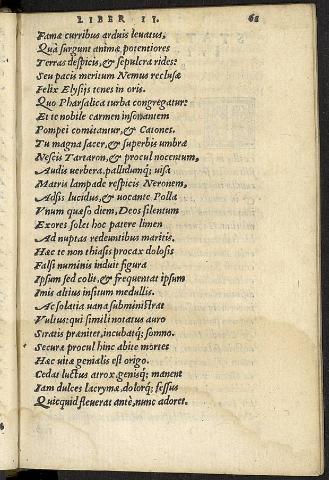 LIBER II. 68
Famæ curribus arduis leuatus,
Quà surgunt animæ potentiores
Terras despicis, & sepulcra rides:
Seu pacis meritum Nemus reclusæ
Felix Elysijs tenes in oris.
Quo Pharsalica turba congregatur:
Et te nobile carmen insonantem
Pompei comitantur, & Catones.
Tu magna sacer, & superbis umbra
Nescis Tartaron, & procul nocentum,
Audis uerbera, pallidumq; uisa
Matris lampade respicis Neronem,
Adsis lucidus, & uocante Polla
Vnum quæso diem, Deos silentum
Exores solet hoc patere limen
Ad nuptas redeuntibus maritis.
Hæc te non thiasis procax dolosis
Falsi numinis induit figura
Ipsum sed colit, & frequentat ipsum
Imis altius insitum medullis.
Ac solatia uana subministrat
Vultus: qui simili notatus auro
Stratis prænitet, incubatq; somno.
Securæ procul hinc abite mortes
Hæc uitæ genialis est origo.
Cedat luctus atrox, genisq; manent
Iam dulces lacrymæ, dolorq; festus
Quicquid fleuerat antè, nunc adoret.